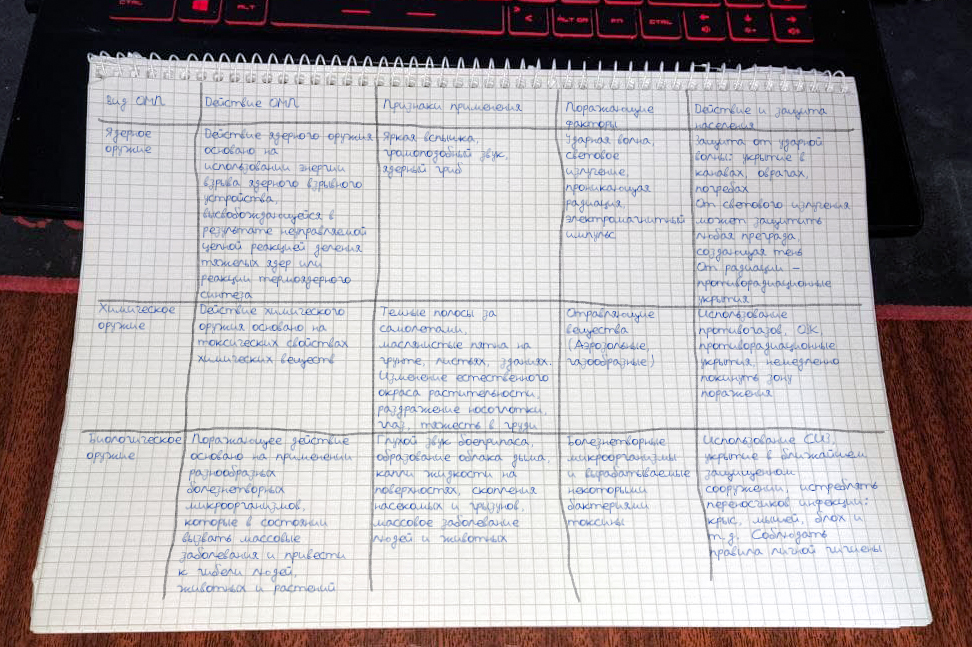 CTRL
ALT
ALT GR
FN
CTRL
Вид ОМП
Действие ОМП
Признаки применения
Поражающие
факторы
Действие и защита
населения
Ядерное
оружие
Действие ядерного оружия
основано на
использовании энергии
взрыва ядерного взрывного
устройства,
высвобождающейся в
результате неуправляемой
цепной реакцией деления
тяжелых ядер или
реакции термоядерного
синтеза
Яркая вспышка,
громоподобный звук,
ядерный гриб
Ударная волна,
световое
излучение,
проникающая
радиация
электромагнитный
импульс
Защита от ударной
волны: укрытие в
канавах, оврагах,
погребах
От светового излучения
может защитить
любая преграда,
создающая тень
От радиации –
противорадиационные
укрытия
Химическое
оружие
Действие химического
оружия основано на
токсических свойствах
химических веществ
Темные полосы за
самолетами,
маслянистые пятна на
грунте, листьях, зданиях.
Изменение естественного
окраса растительности,
раздражение носоглотки,
глаз, тяжесть в груди
Отравляющие
вещества
(Аэрозольные,
газообразные)
Использование
противогазов, ОЗК,
противорадиационные
укрытия, немедленно
покинуть зону
поражения
Биологическое
оружие
Поражающее действие
основано на применении
разнообразных
болезнетворных
микроорганизмов,
которые в состоянии
вызвать массовые
заболевания и привести
к гибели людей,
животных и растений
Глухой звук боеприпаса,
образование облака дыма,
капли жидкости на
поверхностях, скопления
насекомых и грызунов,
массовое заболевание
людей и животных
Болезнетворные
микроорганизмы
и вырабатываемые
некоторыми
бактериями
токсины
Использование СИЗ,
укрытие в ближайшем
защищенном
сооружении, истреблять
переносчиков инфекции:
крыс, мышей, блох и
т.д. Соблюдать
правила личной гигиены